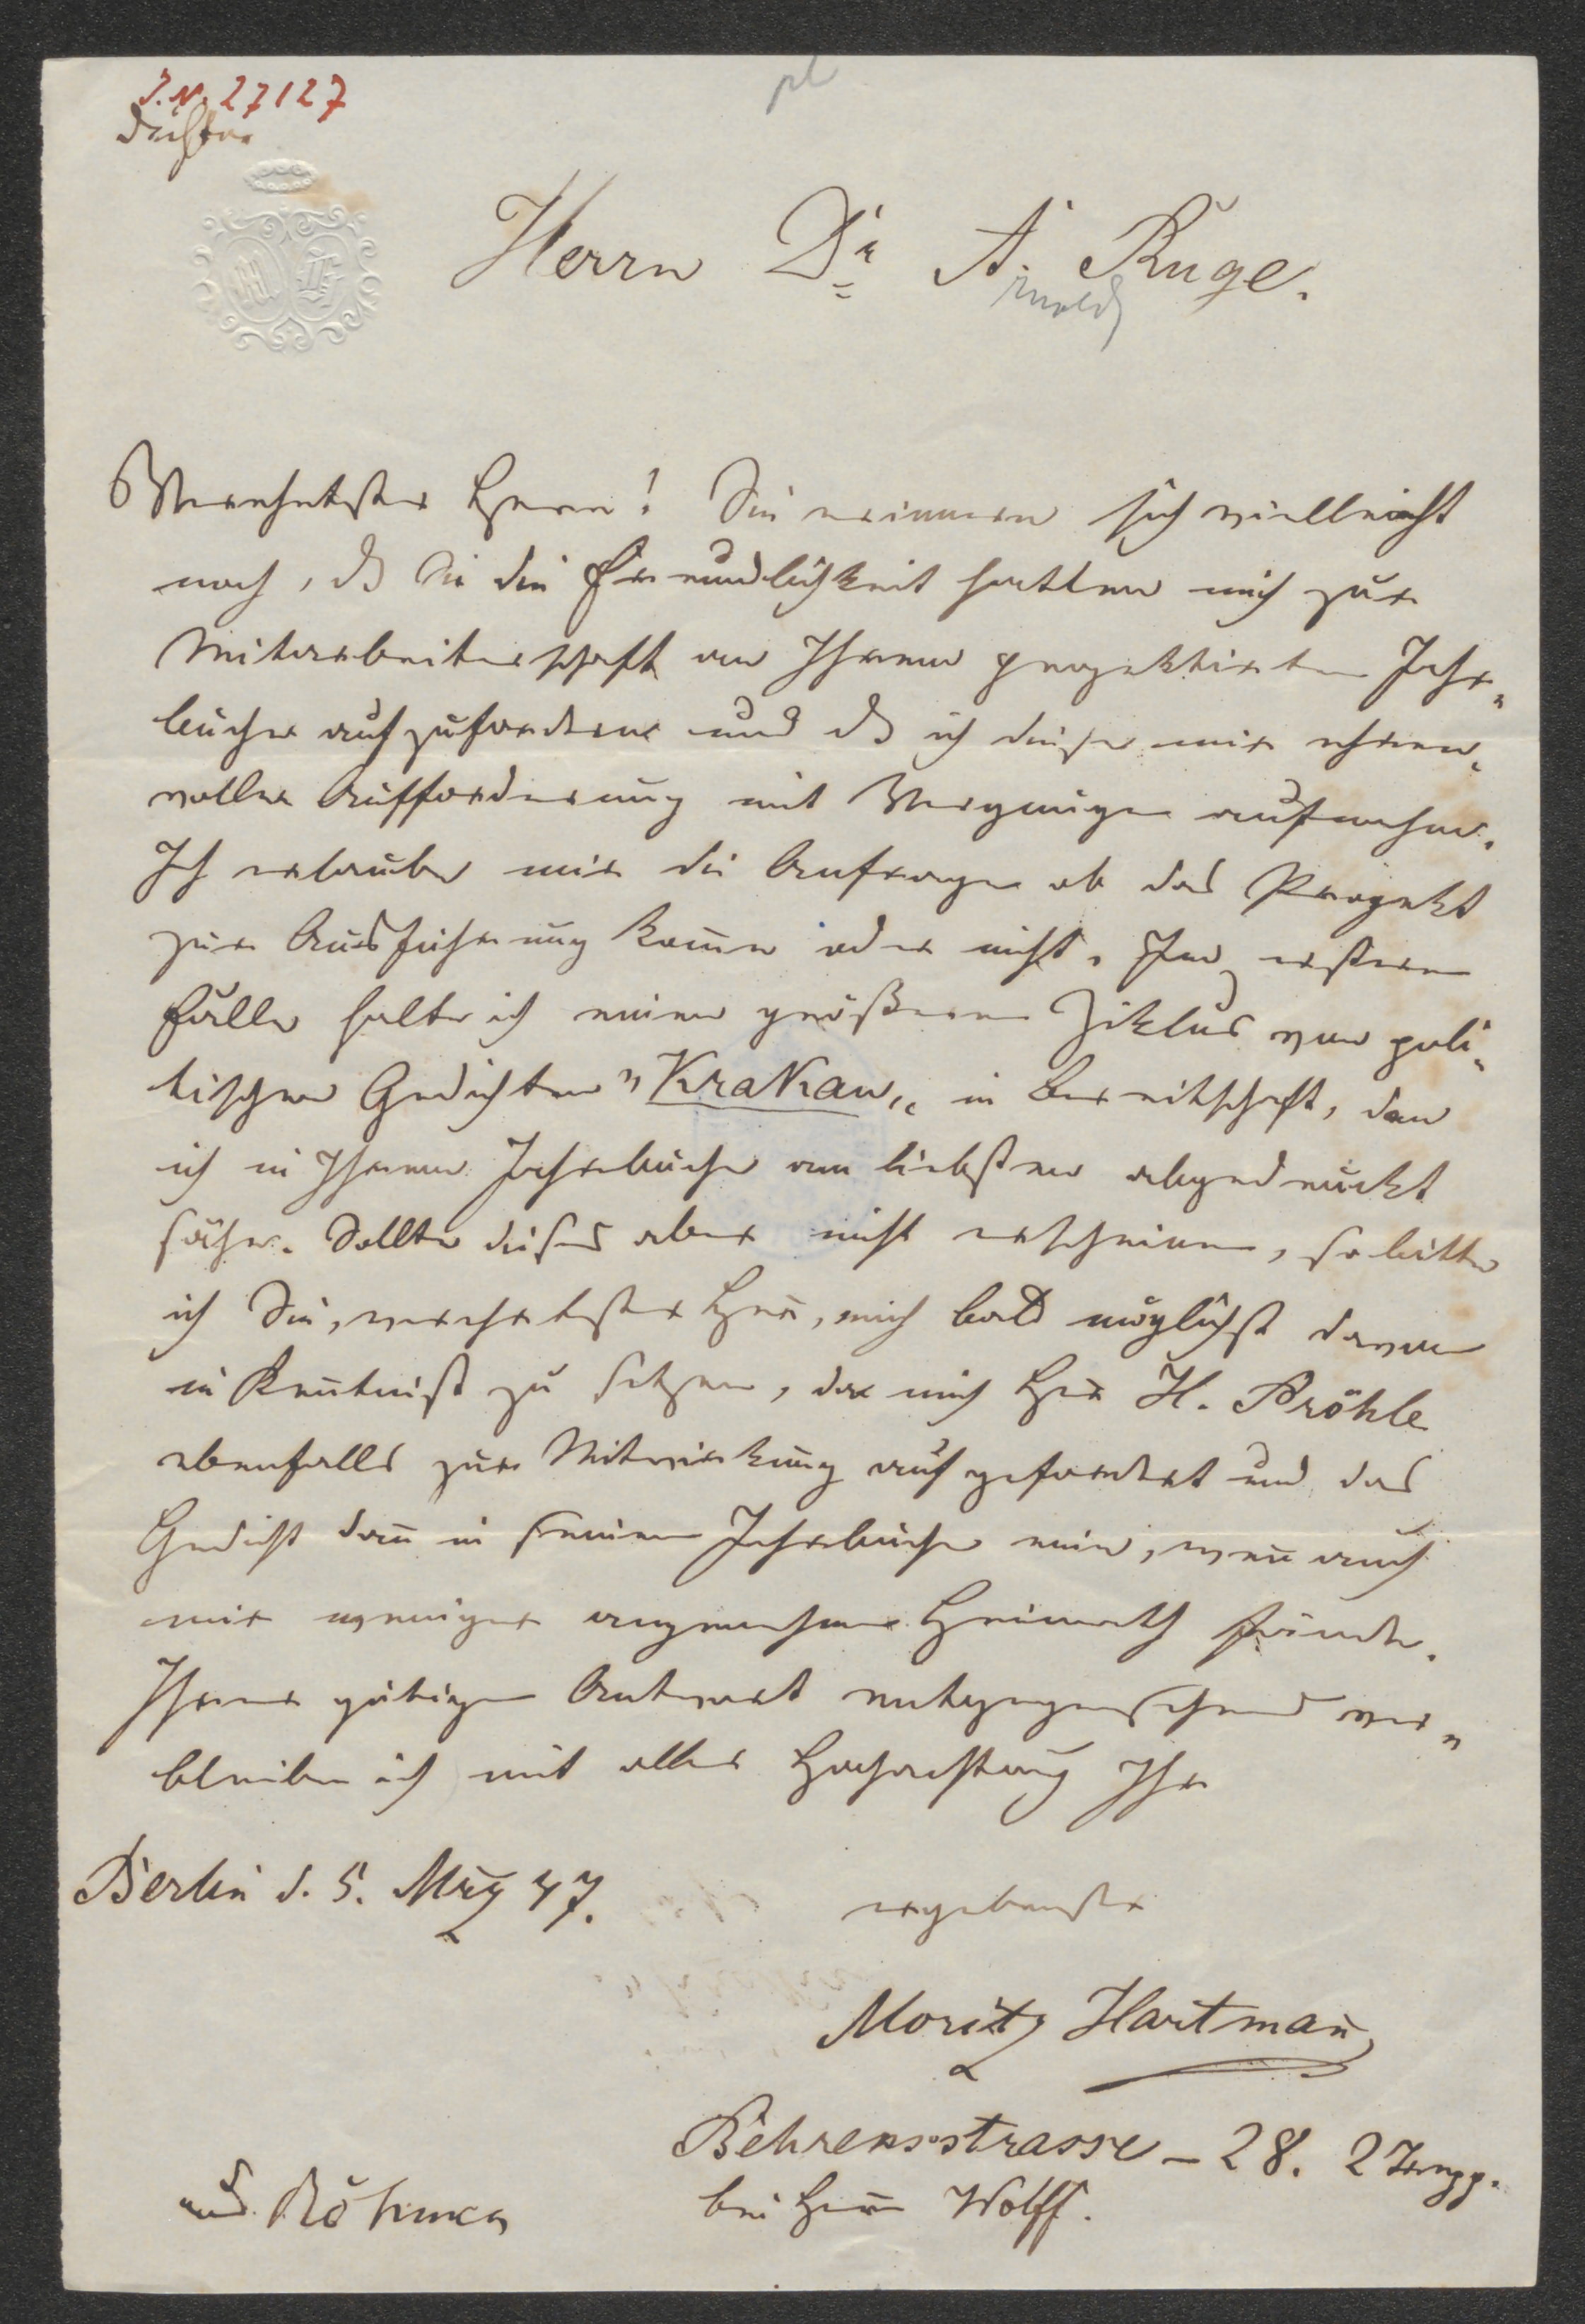 I.N. 27127
Dichter
pl
Herrn Dr A. Ruge.
rnold
Verehrtester Herr! Sie erinnern sich vielleicht
noch, dß Sie die Freundlichkeit hatten mich zur
Mitarbeiterschaft an Ihrem projektirten Jahr„
buche aufzufordern und dß ich diese mir ehren„
volle Aufforderung mit Vergnügen aufnahm.
Ich erlaube mir die Anfrage ob das Projekt
zur Ausführung kam̄e oder nicht. Im ersteren
Falle halte ich einen größeren Ziklus von poli„
tischen Gedichten "Krakau„ in Bereitschaft, den
ich in Ihrem Jahrbuche am liebsten abgedruckt
sähe. Sollte dieses aber nicht erscheinen, so bitte
ich Sie, verehrtester Herr, mich bald möglichst davon
in Ken̄tniß zu setzen, da mich Herr H. Pröhle
ebenfalls zur Mitwirkung aufgefordert und das
Gedicht dan̄ in seinem Jahrbuche eine, wen̄ auch
mir weniger angenehme Heimath fände.
Ihrer gütigen Antwort entgegensehend ver„
bleibe ich mit aller Hochachtung Ihr
Berlin d. 5. Mrz 47.
ergebenster
Moritz Hartman̄
Behrensstrasse – 28. 2 Trepp.
bei Herrn Wolff.
aus Böhmen